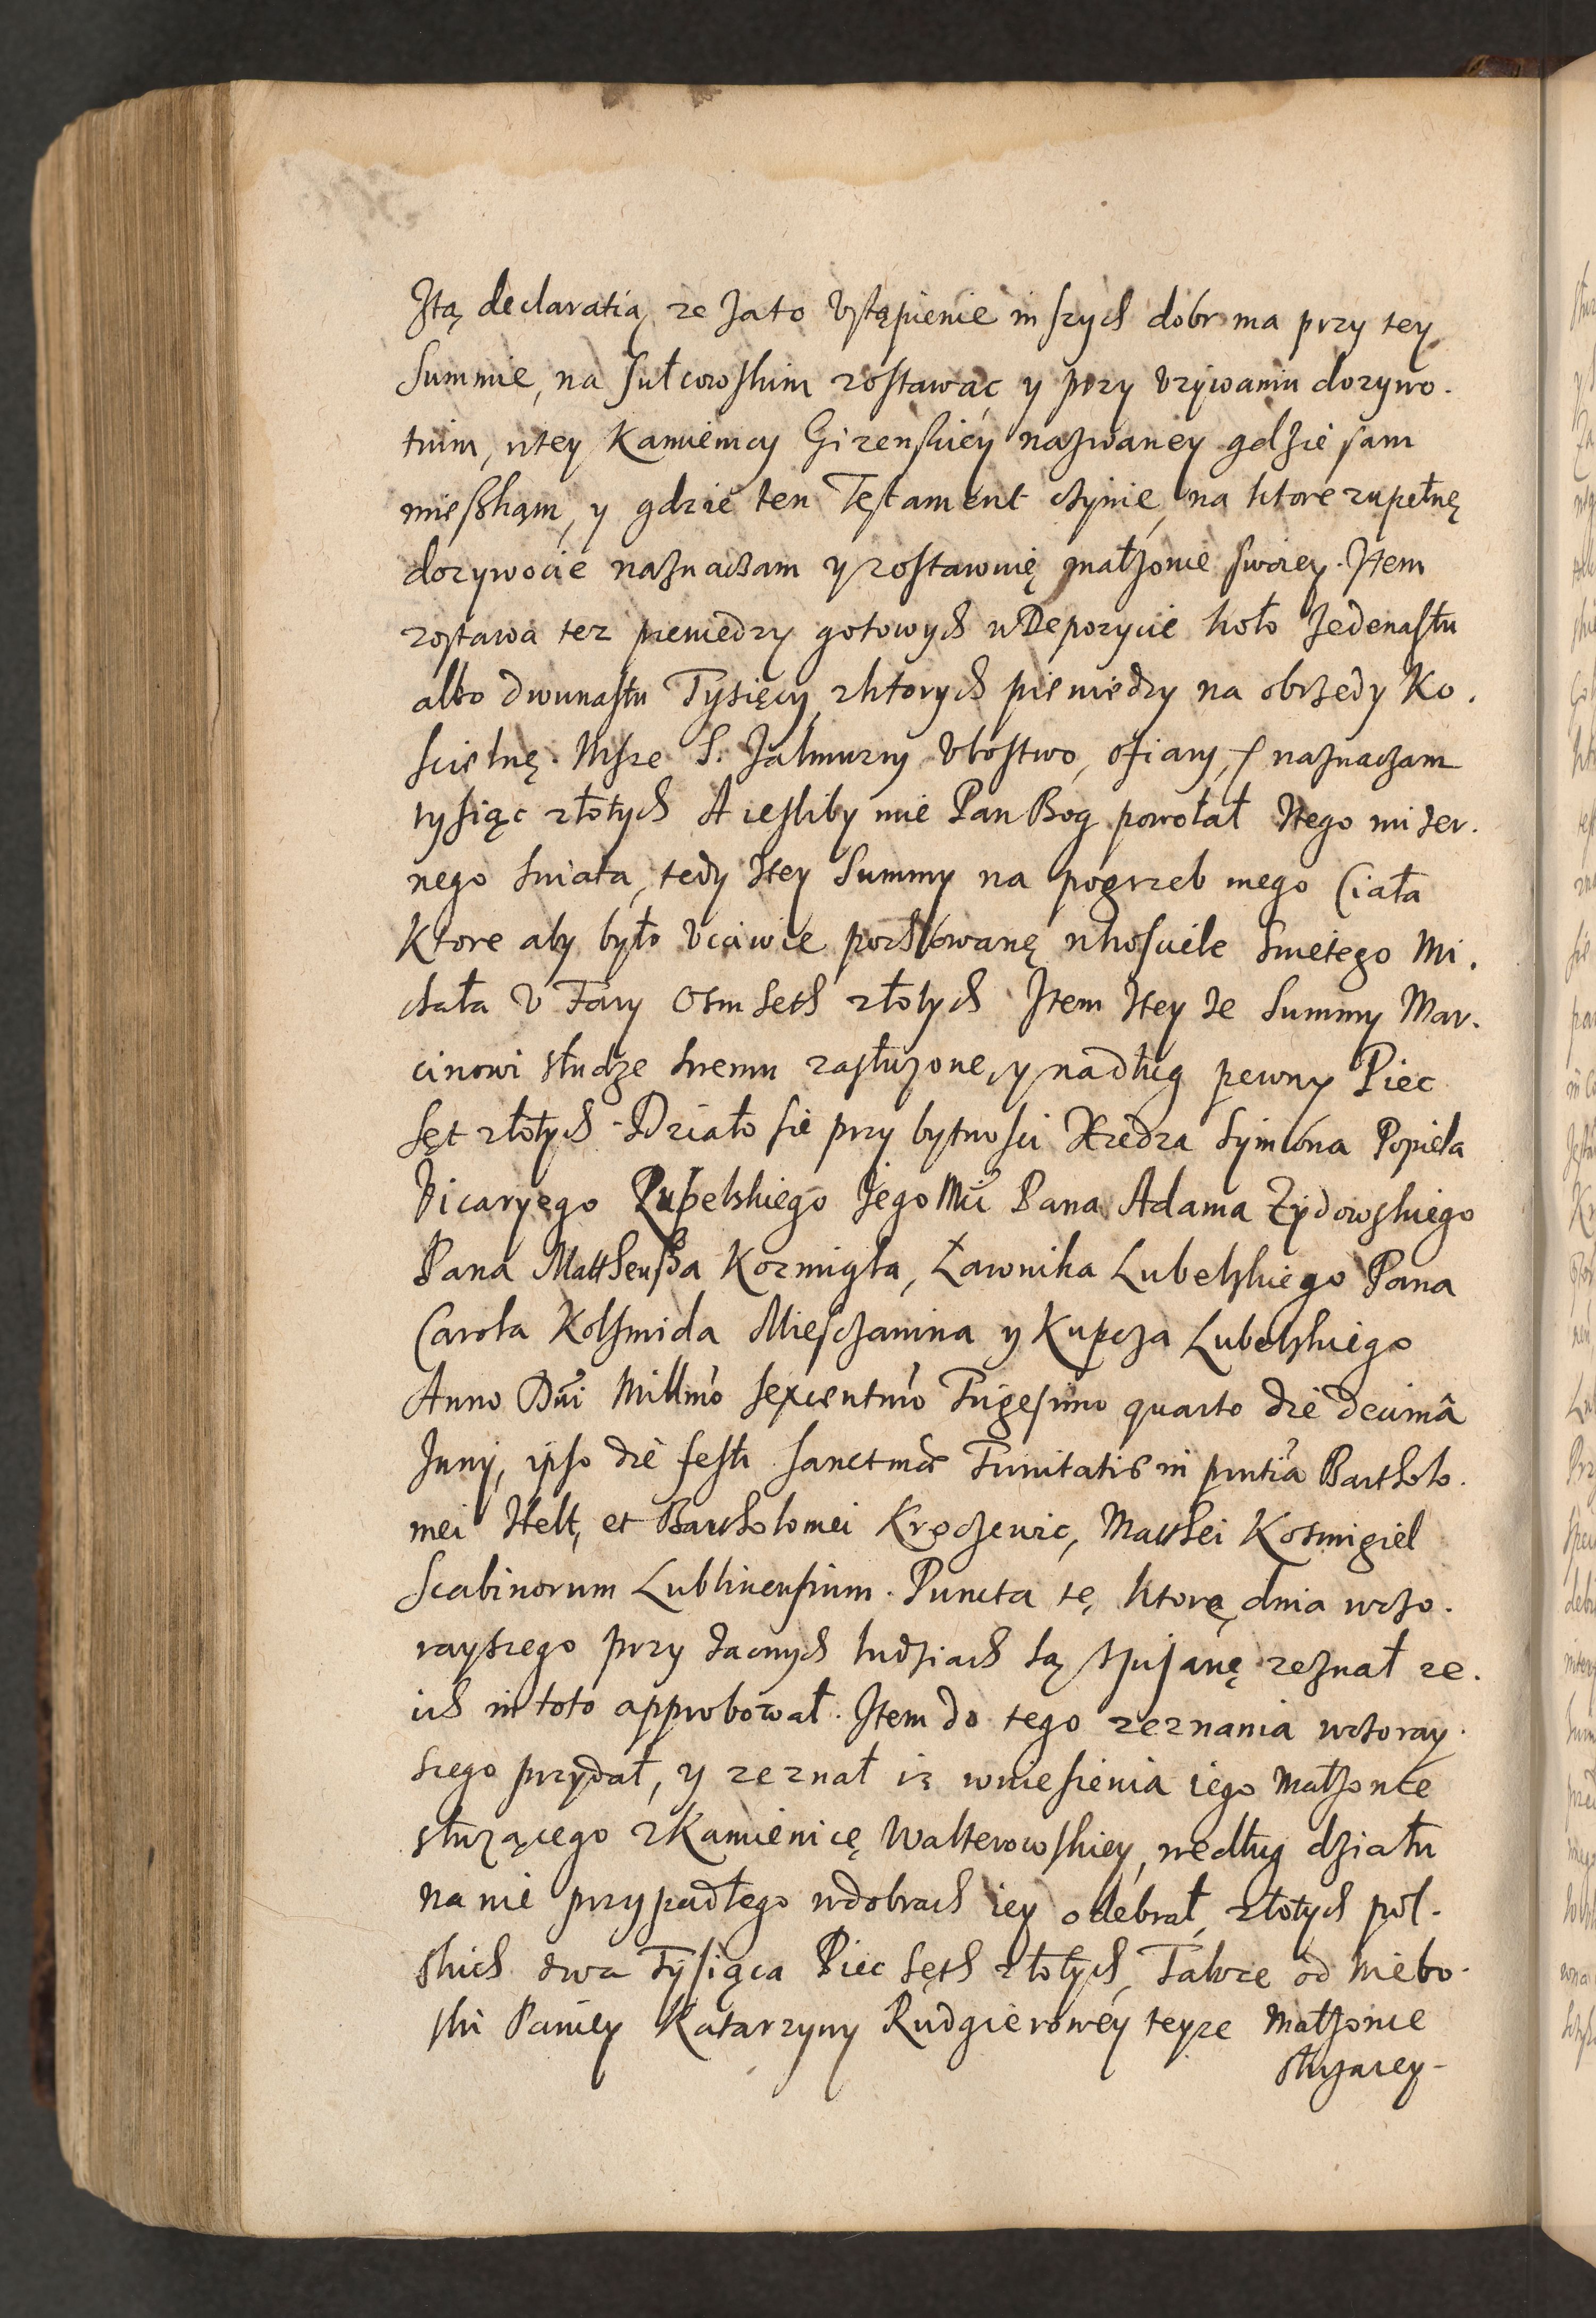 Ztą declaratią ze zato Vstąpienie inszych dobr ma przy tey
Summie, na Sułcowskim zostawac y przy vzywaniu dozywo-
tnim, wtey Kamienicy Gizenskiey nazwaney gdzie sam
mieszkąm, y gdzie ten Testament czynie, na ktore zupełnę
dozywocie naznaczam y zostawuię małzonce swoiey. Item
zostawa tez pieniedzy gotowych wDepozycie koło Jedenastu
albo dwunastu Tysięcy, zktorych pieniedzy na obrzedy Ko-
scielnę. Msze S. Jałmuzny Vbostwo, ofiary, naznaczam
tysiąc złotych A iesliby mie Pan Bog powołał ztego mizer-
nego swiata, tedy ztey Summy na pogrzeb mego Ciała
Ktore aby było Vcciwie pochowanę wkosciele Swietego Mi-
chała V Fary Osm Seth złotych Item ztey ze Summy Mar-
cinowi słudze swemu zasłuzone, y nadług pewny Piec
Sęt złotych. Działo sie przy bytnosci Xiedza Symona Popiela
Vicaryego Lubelskiego Jego Mći Pana Adama Zydowskiego
Pana Mattheusza Kozmigla, Ławnika Lubelskiego Pana
Carola Kolsmida Miesczanina y Kupcza Lubelskiego
Anno Dni Millmo sexcentmo Trigesimo quarto die decimâ
Juny, ipso die festi sanctmae Trinitatis in pntia Bartholo-
mei Helt, et Bartholomei Kroczewic, Matthei Kosmigiel
Scabinorum Lublinensium. Puncta tę, ktorę dnia wczo-
rayszego przy zacnych ludziach są spisanę zeznał ze-
ich in toto approbował. Item do tego zeznania wczoray-
szego przydał, y zeznał iz wniesienia iego Małzonce
słuzącego zKamienicę Walterowskiey, według działu
na nie przypadłego wdobrach iey odebrał, złotych pol-
skich dwa Tysiąca Piec Sęth złotych, Takze od Niebo-
ski Paniey Katarzyny Rudgierowey teyze Małzonce
słuzacey-